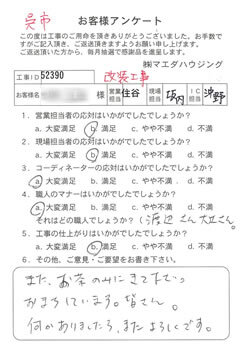 呉市
お客様アンケート
この度は工事のご用命を頂きありがとうございます。お手数で
すがご記入頂き、ご返送頂きますようお願い申し上げます。
ご返送頂いた方から、毎月抽選で感謝品を進呈します。
㈱マエダハウジング
工事ID 52390 改装工事
お客様名 様 営業担当 住谷 現場担当 坂内 IC担当 沖野
1．営業担当者の応対はいかがでしたでしょうか？
a. 大変満足 b. 満足 c. やや不満 d. 不満
2．現場担当者の応対はいかがでしたでしょうか？
a. 大変満足 b. 満足 c. やや不満 d. 不満
3．コーディネーターの応対はいかがでしたでしょうか？
a. 大変満足 b. 満足 c. やや不満 d. 不満
4．職人のマナーはいかがでしたでしょうか？
a. 大変満足 b. 満足 c. やや不満 d. 不満
それはどの職人でしょうか？（渡辺さん 大庄さん）
5．工事の仕上がりはいかがでしたでしょうか？
a. 大変満足 b. 満足 c. やや不満 d. 不満
6．その他、ご意見・ご要望をお書き下さい。
また、お茶のみにきて下さい
おまちしています。皆さん。
何かありましたら、またよろしくです。